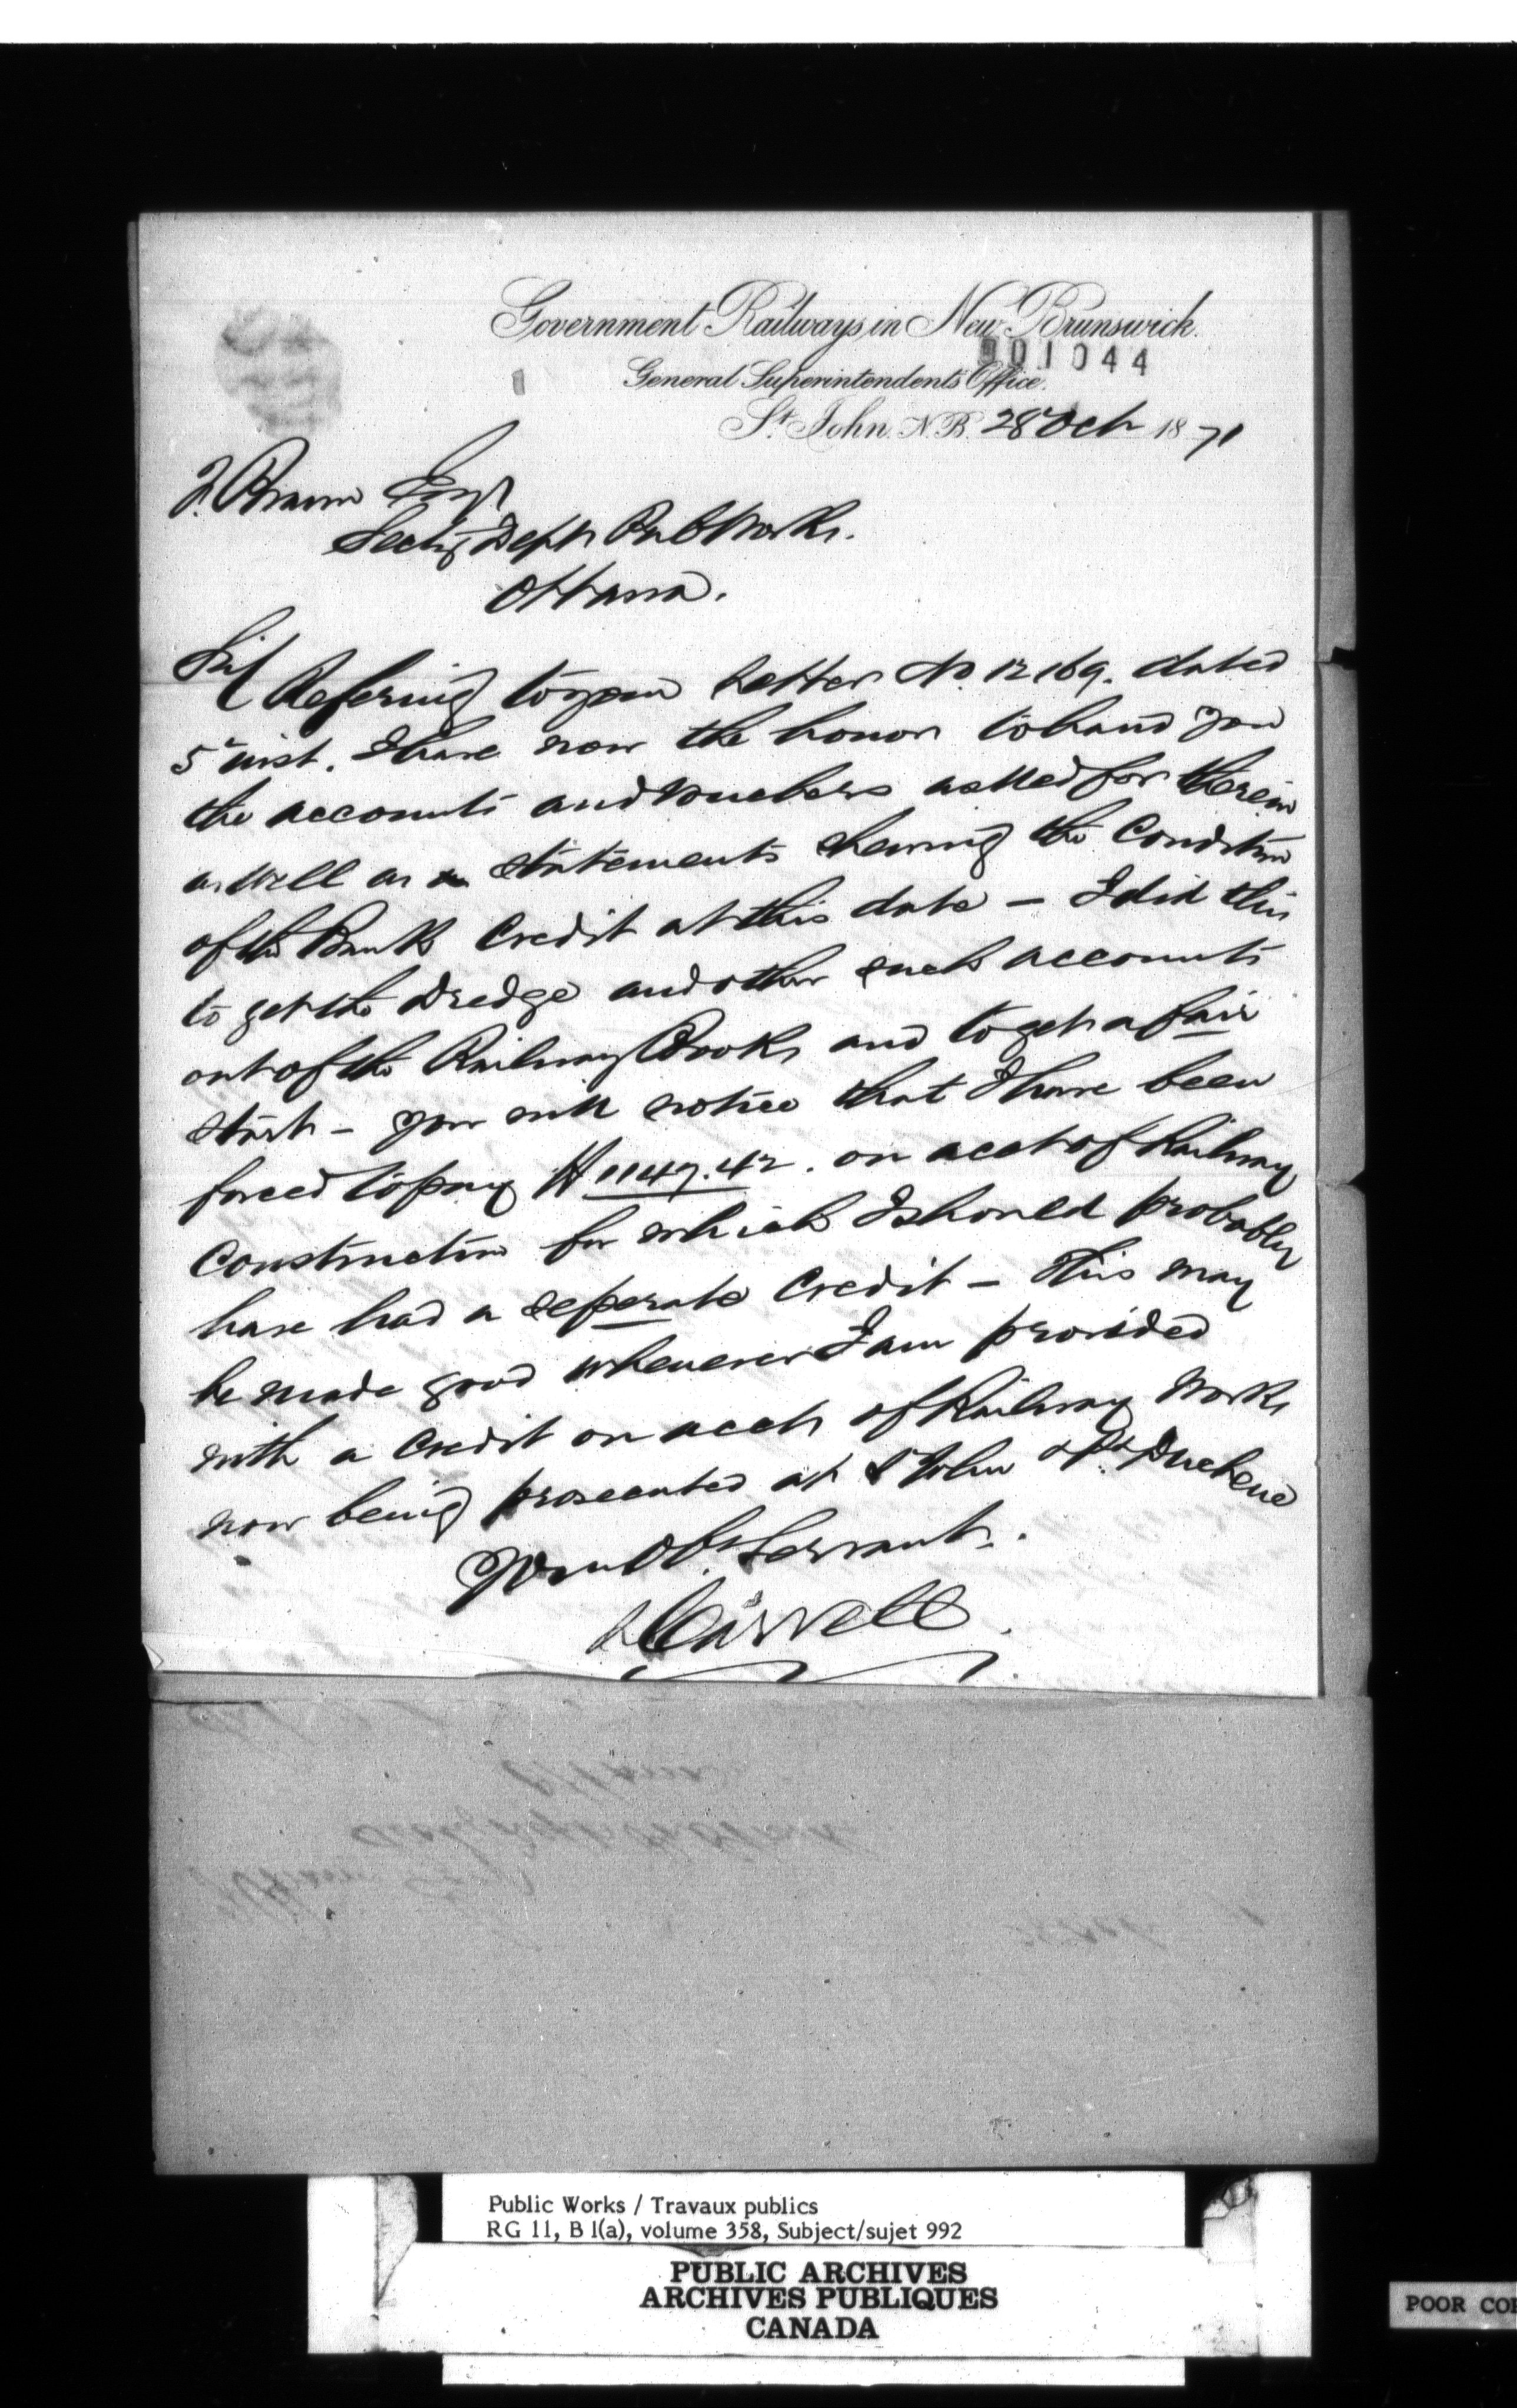 Government Railways in New Brunswick.
001044
General Superintendents Office.
St. John. N.B. 28 Oct 1871
F. Braun Esqr
Secty Dept Pub Works.
Ottawa.
Sir
Refering to your Letter No. 12169. dated
5th inst. I have now the honor to hand you
the accounts and vouchers asked for therein
as well as statements shewing the Condition
of the Bank Credit at this date – I did this
to get the Dredge and other such accounts
out of the Railway Books and to get a fair
start – you will notice that I have been
forced to pay $1147.42. on acct of Railway
Construction for which I should probably
have had a seperate Credit – This may
be made good whenever I am provided
with a Credit on acct of Railway Works
now being prosecuted at St John & Pt. Duchene
Your Ob. Servant.
L Carvell
Public Works / Travaux publics
RG 11, B 1(a), volume 358, Subject/sujet 992
PUBLIC ARCHIVES
ARCHIVES PUBLIQUES
CANADA
POOR COP